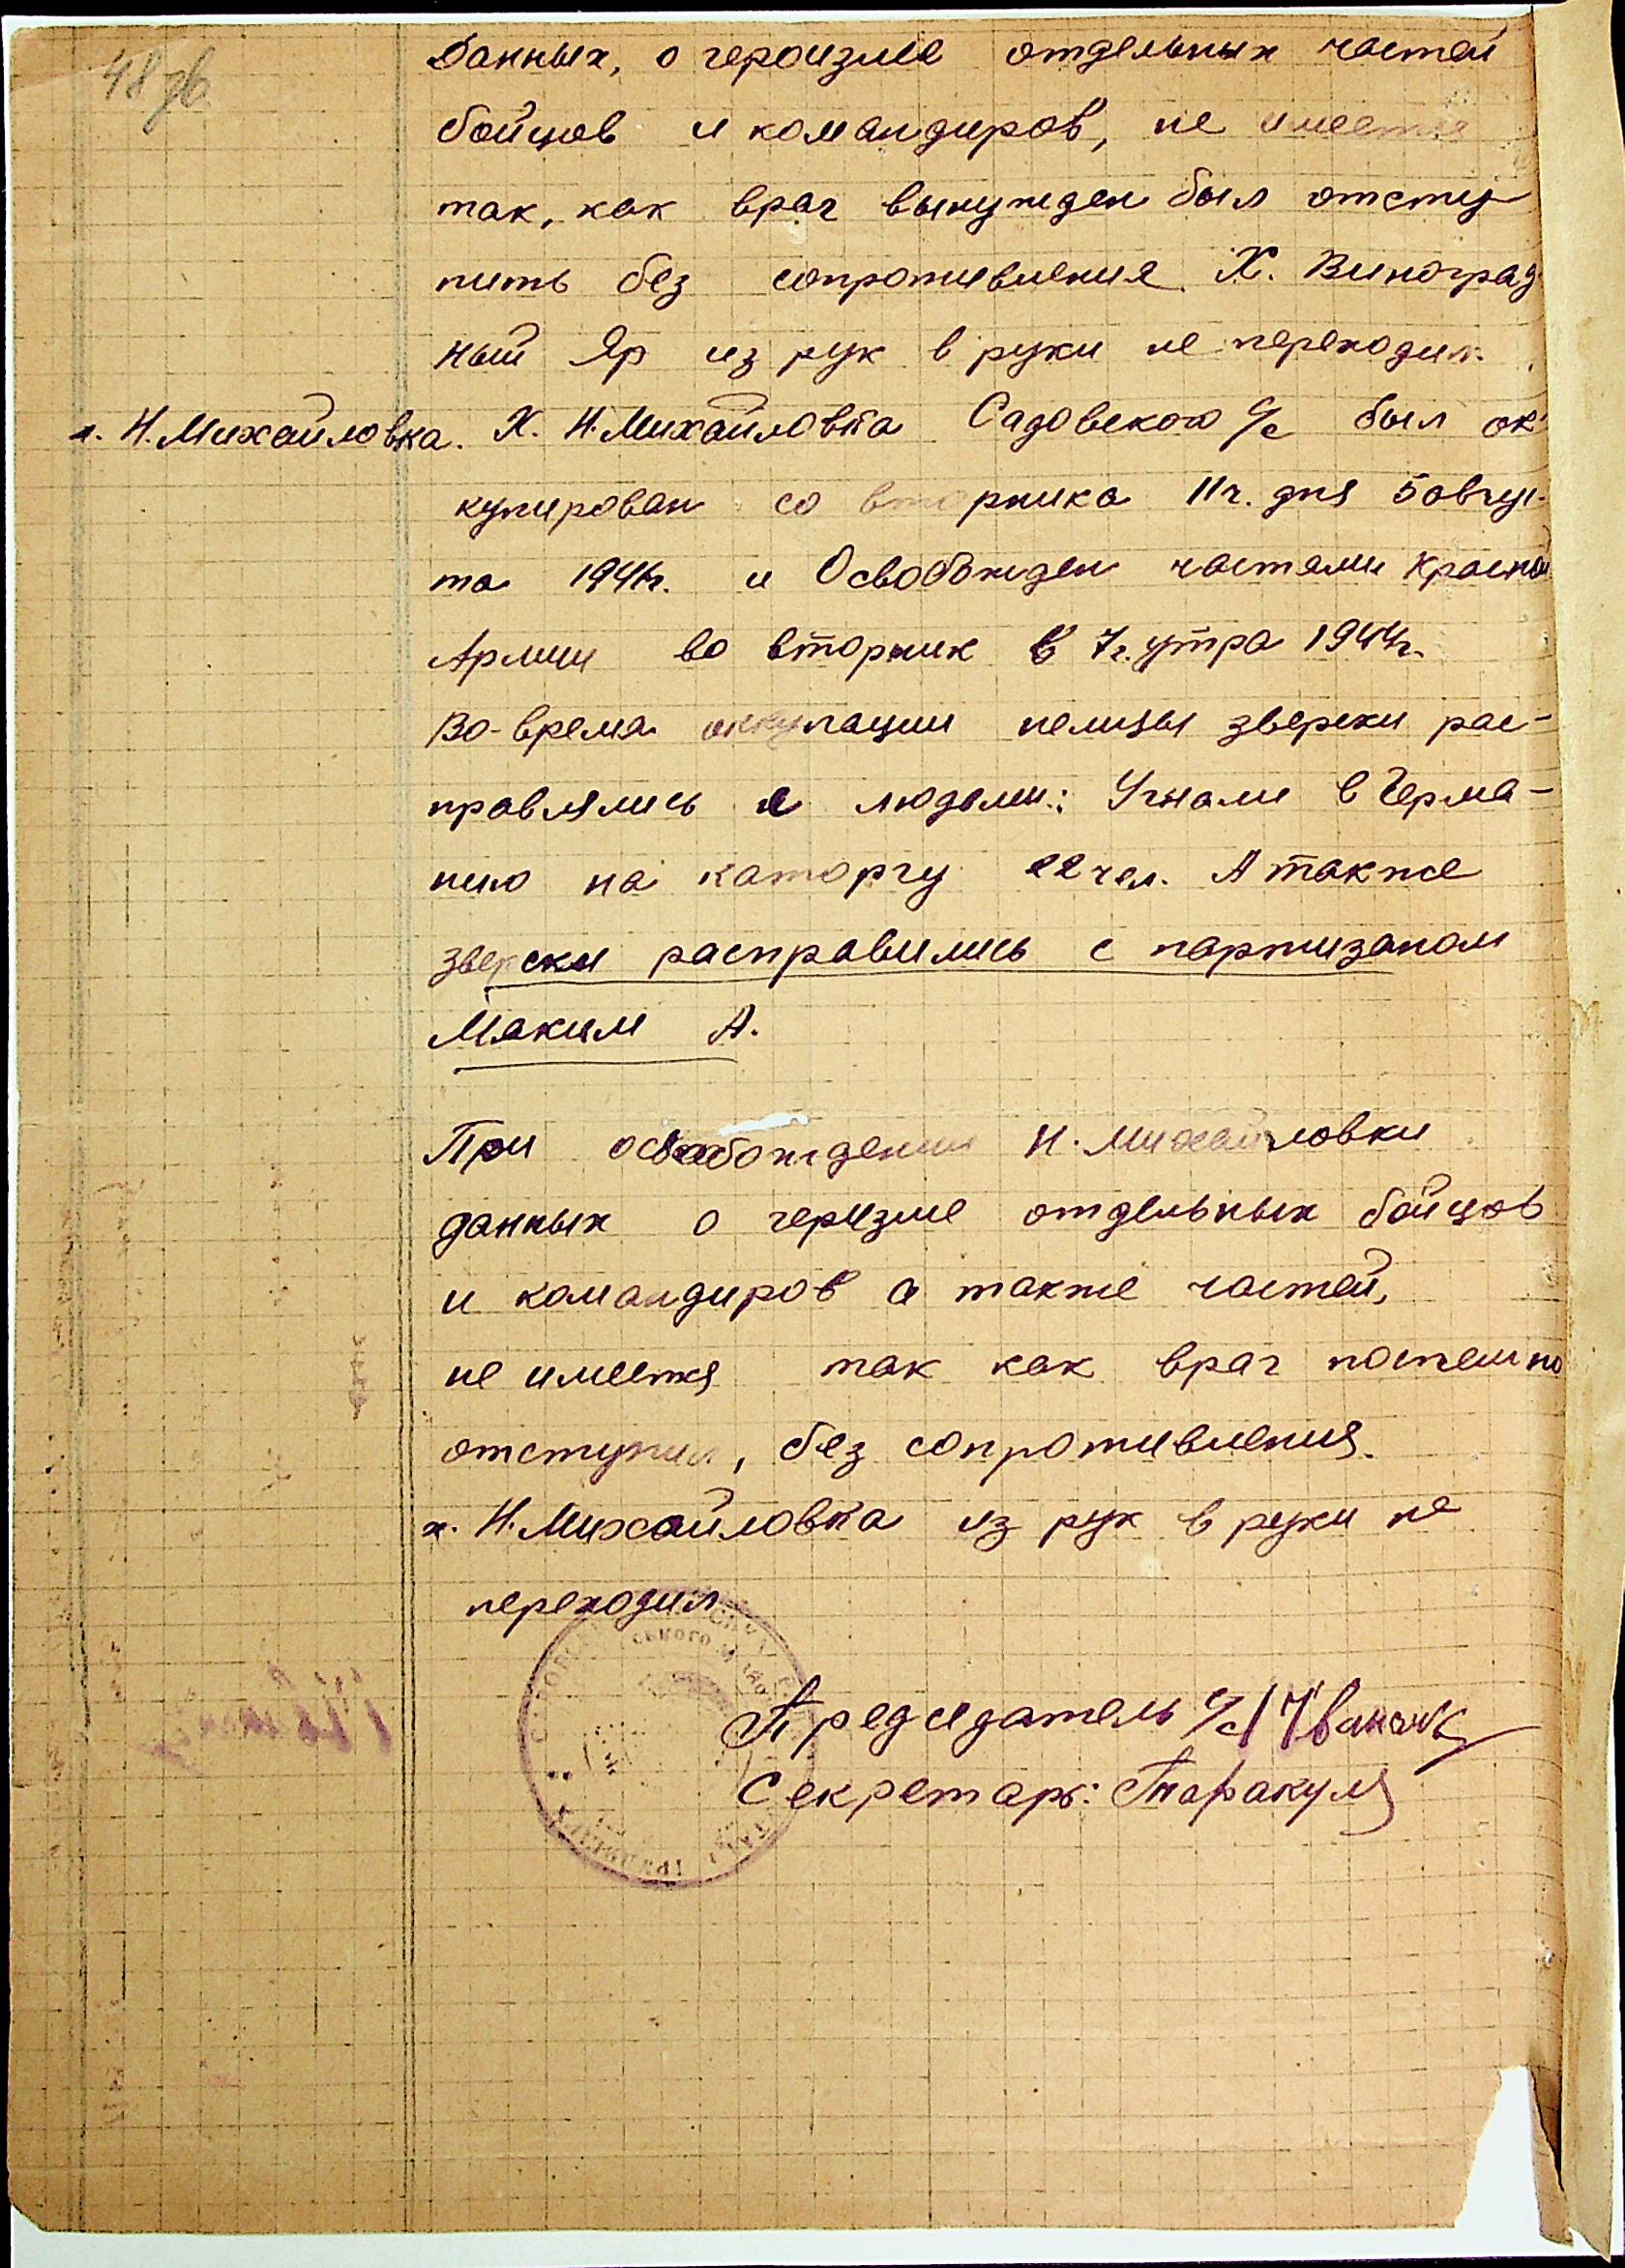 48 зв.
данных, о героизме отдельных частей
бойцов и командиров, не имеется
так, как враг вынужден был отсту-
пить без сопротивления. Х. Виноград
ный Яр из рук в руки не переходил.
х. Н. Михайловка. Х. Н. Михайловка Садовского с/с был ок-
купирован со вторника 11 ч. дня 5 авгус-
та 1941 г. и Освобожден частями Красной
Армии во вторник в 7 ч. утра 1944 г.
Во-время оккупации немцы зверски рас-
правлялись с людьми: Угнали в Герма-
нию на каторгу 22 чел. А также
зверски расправились с партизаном
Маким А.
При освобождении Н. Михайловки
данных о геризме отдельных бойцов
и командиров а также частей,
не имеется так как враг поспешно
отступил, без сопротивления.
х. Н. Михайловка из рук в руки не
переходил
Председатель с/с
Секретарь: